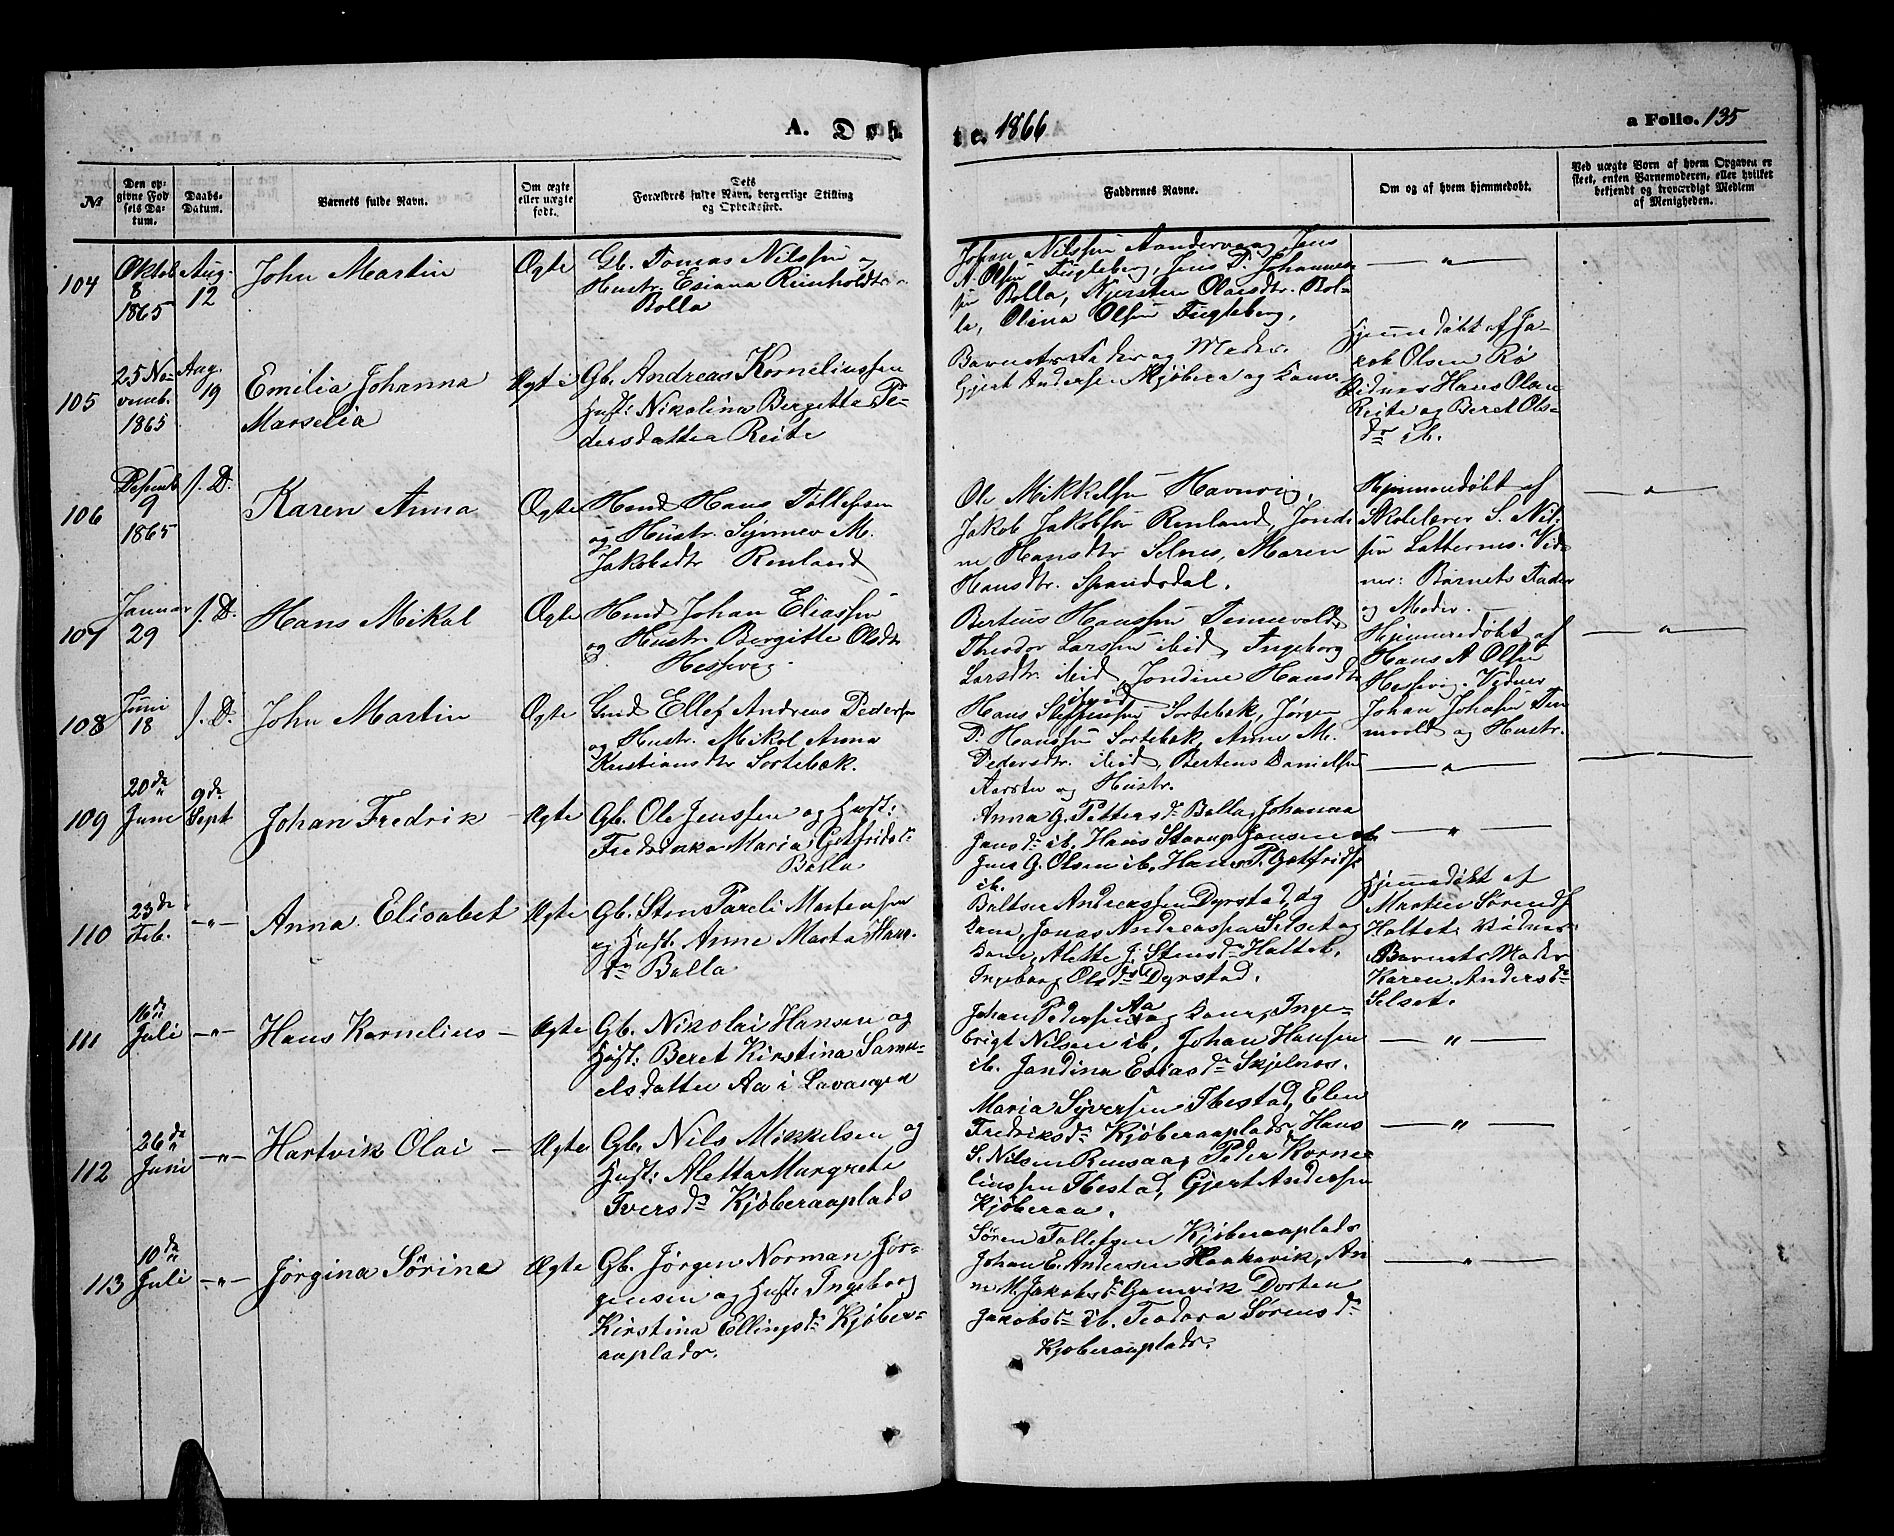 A. Døb
te. 1866
a Folio. 135
No
Den op-
givne Fød
sels Da-
tum.
Daabs-
Datum.
Barnets fulde Navn.
Om ægte
eller uægte
født.
Dets
Forældres fulde Navn, borgerlige Stilling
og Opholdssted.
Faddernes Navne.
Om og af hvem hjemmedøbt.
Ved uægte Børn af hvem Opgaven er
skeet, enten Barnemoderen, eller hvilket
bekjendt og troværdigt Medlem
af Menigheden.
104
Oktob
8
1865
Aug.
12
John Martin
Ægte
Gb. Tomas Nilssen og
Hustr. Esiana Reinholdtr.
Bolla
Johan Nilssen Aandervaag, Jens
A. Olsen Fugleberg, Jens P. Johannes
sen Bolla, Kjersten Olausdtr. Bol-
la, Olina Olsen Fugleberg,
— " —
105
25 No-
vemb.
1865
Aug.
19
Emilia Johanna
Marselia
Ægte
Gb. Andreas Korneliussen
Hust: Nikolina Bergitta Pe-
dersdatter Reite
Barnets Fader og Moder.
Gjert Andersen Kjøbera og Kone
Hjemmedøbt af Ja-
kob Olsen Rø
Vidner Hans Olsen
Reite og Beret Ols-
dr ib.
106
Desemb
9
1865
s. D.
Karen Anna
Ægte
Hmd Hans Tollefsen
og Hustr. Synnev M.
Jakobsdtr Renland
Ole Mikkelsen Havnvig,
Jakob Jakobsen Renland, Jondi
ne Hansdtr Selnes, Maren
Hansdtr. Spandsdal.
Hjemmedøbt af
Skolelærer S. Nil-
sen Latternes. Vid-
ner: Barnets Fader
og Moder.
— " —
107
Januar
29
s. D.
Hans Mikal
Ægte
Hmd Johan Eliassen
og Hustr Bergitte Olsdtr
Hessevig.
Berteus Hanssen Tennevold,
Theodor Larssen ibid, Ingeborg
Larsdtr ibid, Jondine Hansdtr
ibid
Hjemmedøbt af
Hans A Olsen
Hessevig. Vidner
Johan Johnsen Ten
nevold og Hustr.
— " —
108
Juni
18
s. D.
John Martin
Ægte
Gmd Ellef Andreas Pedersen
og Hustr. Mikol Anna
Kristiansdtr Sortebæk.
Hans Steffensen Sortebæk, Jørgen
P. Hanssen Sortebæk, Anne M.
Pedersdtr. ibid, Berteus Danielsen
Aarsten og Hustr.
— " —
109
20de
June
9de
Sept
Johan Fredrik
Ægte
Gb. Ole Jenssen og Hust:
Fredrikka Maria Getfridsdr
Bolla
Anna G. Pettersdr Bolla, Johanna
Jansdr ib, Hans Staarup Jansen ib
Jens G. Olsen ib, Hans P. Getfridss
ib.
— " —
110
23de
Feb.
— " —
Anna Elisabet
Ægte
Gb. Sten Pareli Martensen
og Hust. Anne Marta Hans-
dr Bolla
Baltser Andreassen Dyrstad, og
Kone, Jonas Andreassen Selset og
Kone, Alette J. Stensdr Haltet,
Ingeborg Olsdr Dyrstad.
Hjemmedøbt af
Marten Sørends
Haltet. Vidner
Barnets Moder
Karen Andersdr
Selset.
111
16de
Juli
— " —
Hans Kornelius
Ægte
Gb. Nikolai Hansen og
Hust: Beret Kirstina Samu-
elsdatter Aa i Lavangen
Johan Pedersen Aa og Kone, Inge-
brigt Nilsen ib, Johan Hansen
ib. Jandina Esiasdr Skjelnes.
— " —
112
26de
Juni
— " —
Hartvik Olai
Ægte
Gb. Nils Mikkelsen og
Hust: Aletta Margrete
Iversdr Kjøberaaplads
Maria Syversen Ibestad, Elen
Fredriksdr Kjøberaaplads, Hans
S. Nilsen Rensaa, Peder Korne-
liussen Ibestad, Gjert Andersen
Kjøberaa.
— " —
113
10de
Juli
— " —
Jørgina Sørine
Ægte
Gb. Jørgen Norman Jør-
gensen og Hust: Ingeborg
Kirstina Ellingsdr Kjøber-
aaplads.
Søren Tollefsen Kjøberaaplads
Johan E. Andersen Haakavik, An
ne M. Jakobsdr Gamvik Dorten
Jakobsdr ib. Teodora Sørensdr
Kjøberaaplads.
— " —